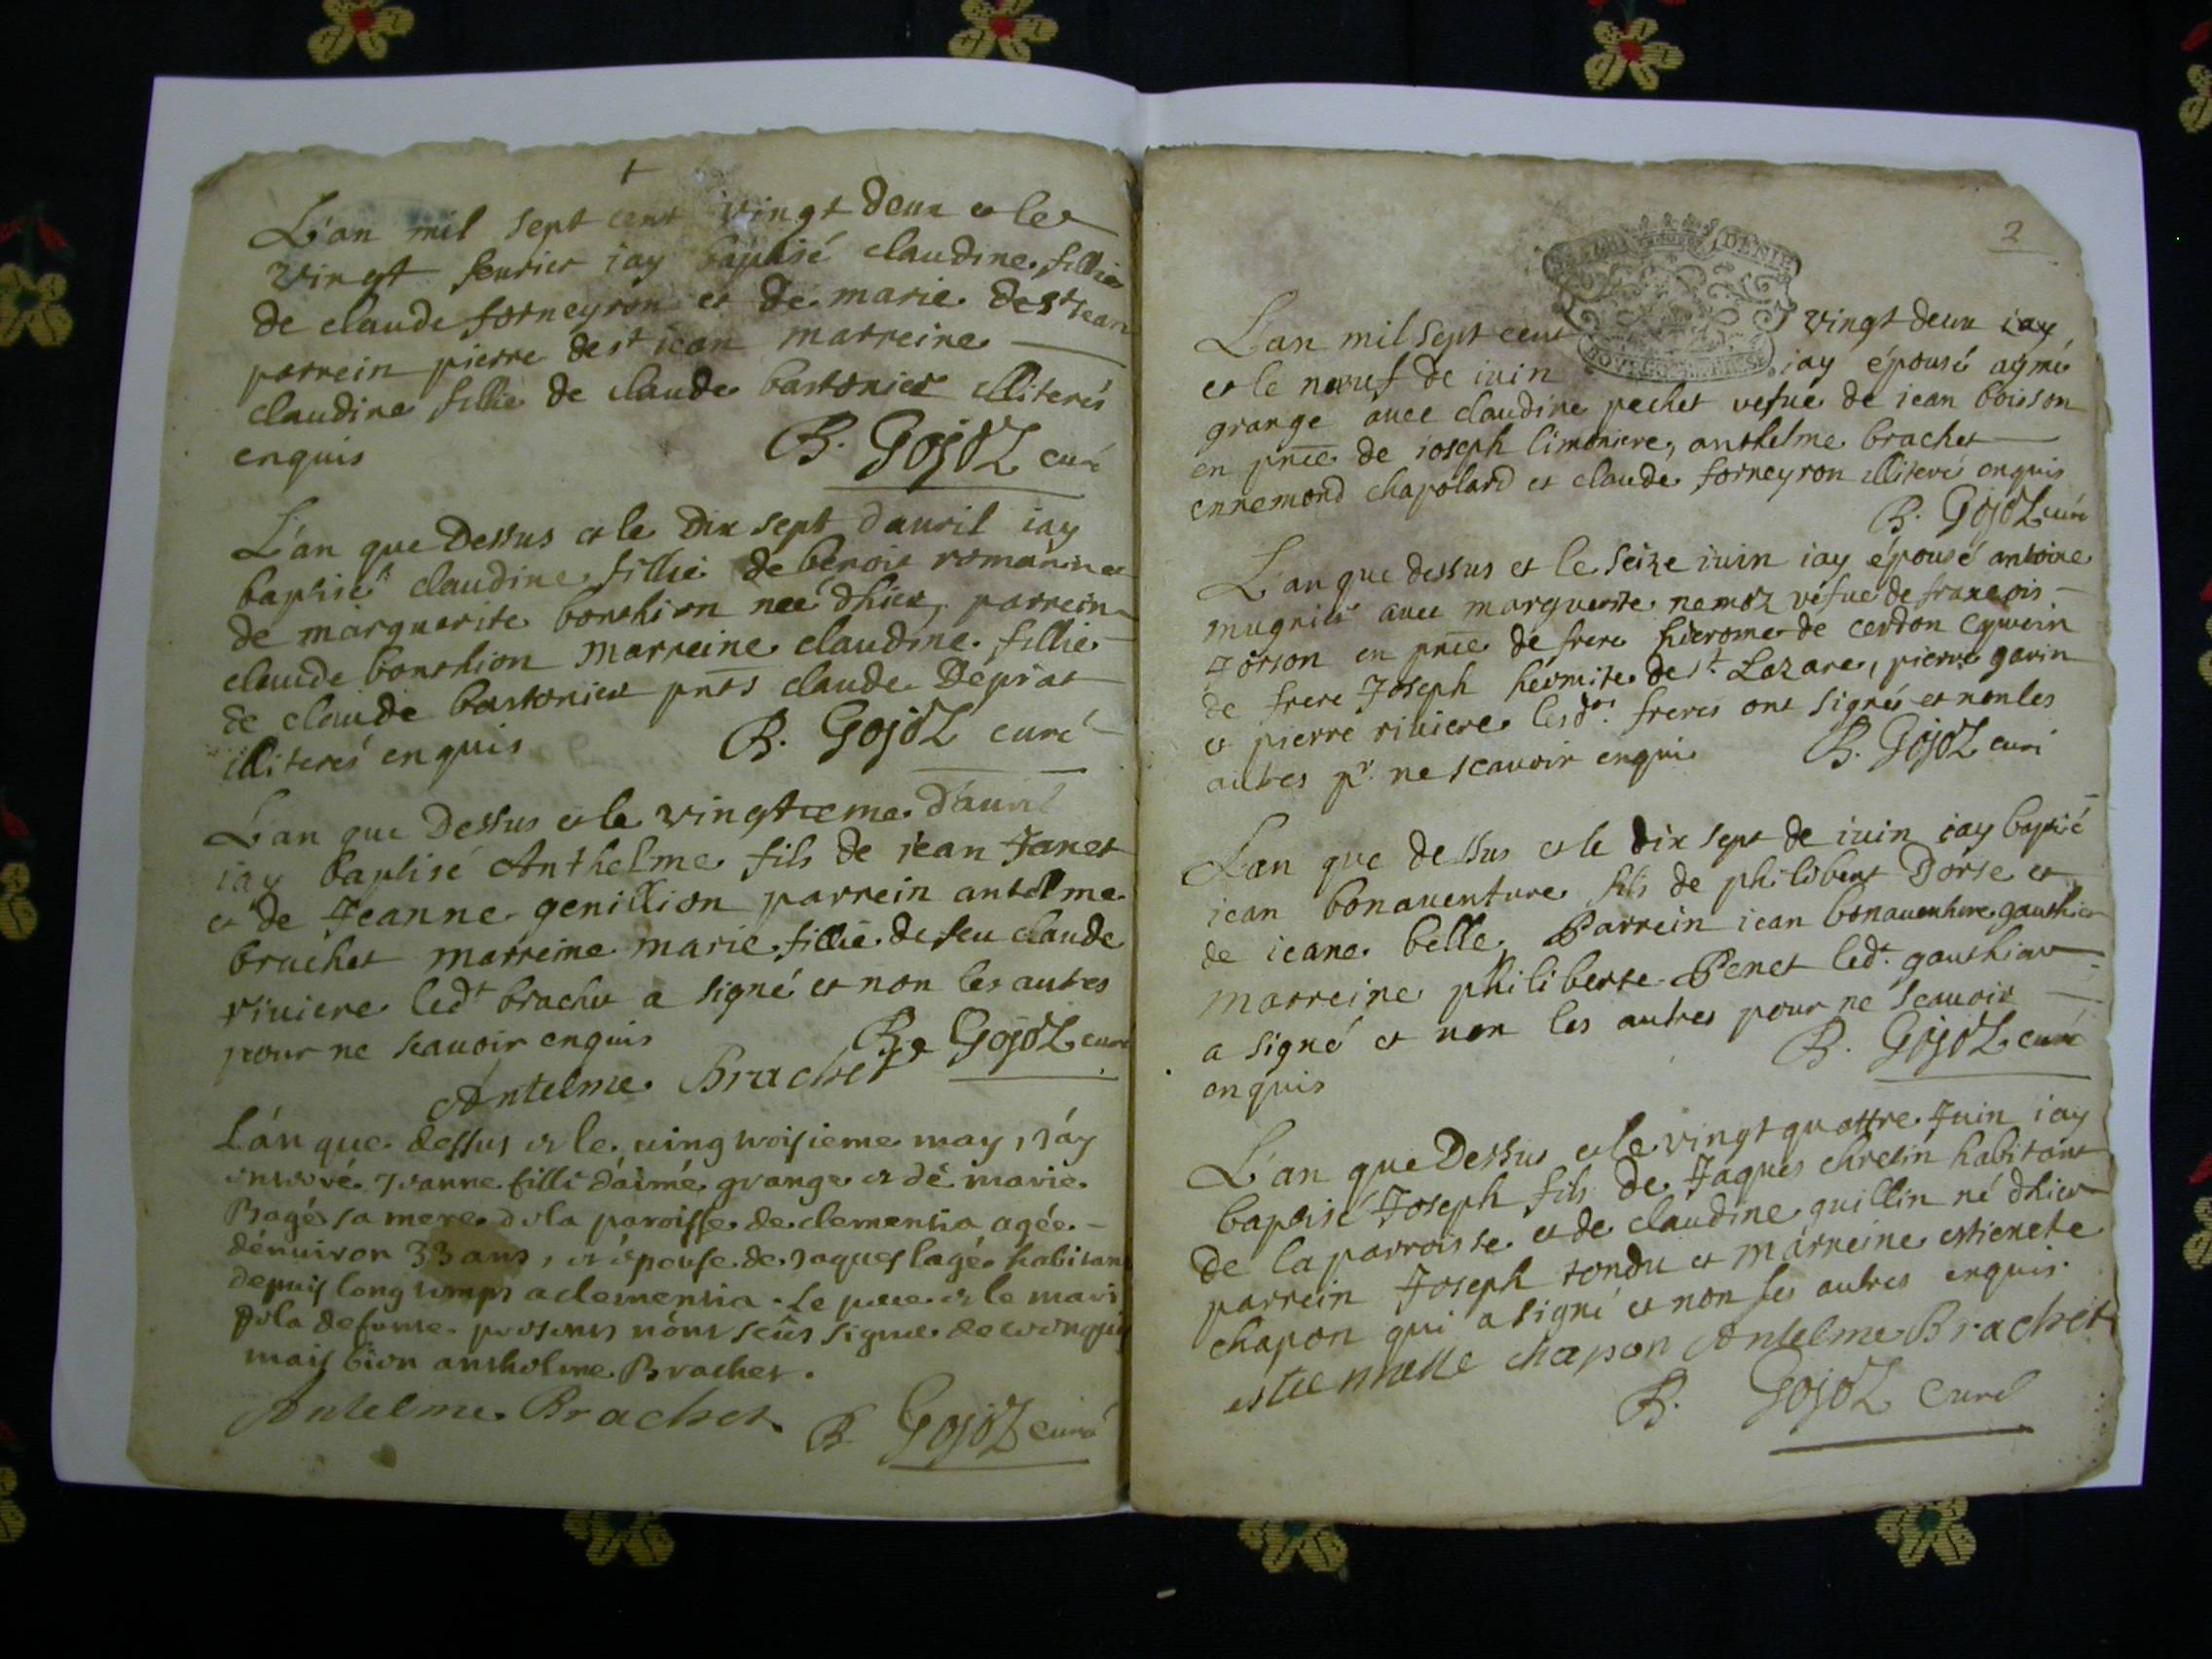 L'an mil sept cent vingt deux et le
vingt feurier iay baptisé claudine fillie
de claude forneyron et de marie de st iean
parrein pierre de st iean marreine
claudine fillie de claude bastonier illiterés
enquis
B. Gojoz curé
L'an que Dessus et le Dix sept d'auril iay
baptisé claudine fillie de benoit roman et
de marguerite bonthion neé dhier, parrein
claude bonthion marreine claudine fillie
de claude bastonier pnts claude Deprat
illiterés enquis
B. Gojoz curé
L'an que Dessus et le vingtieme d'auril
iay baptisé Anthelme fils de jean Janet
et de Jeanne genillion parrein antelme
brachet marreine marie fillie de feu claude
riuiere ledt brachet a signé et non les autres
pour ne scauoir enquis
B. Gojoz curé
Antelme Brachet
L'an que dessus et le uing troisieme may, j'ay
enterré Jeanne fille d'aimé grange et de marie
Bagés sa mere de la paroisse de clementia agée
d'enuiron 33 ans, et epouse de Jaques lagé habitant
depuis long temps a clementia. Le pere et le mari
de la defunte presents n'ont sceus signer de ce enquis
mais bien anthelme Brachet.
Antelme Brachet
B. Gojoz curé
2
L'an mil sept cent vingt deux iay
et le neuf de iuin iay épousé aymé
grange auec claudine pechet vefue de iean boisson
en pnce de ioseph limoniere, anthelme brachet
ennemond chapolard et claude forneyron illiteré enquis
B. Gojoz curé
L'an que dessus et le seize iuin iay épousé antoine
mugnier auec marguerite nemoz véfue de francois
Jorson en pnce de frere hierome de cerdon
de frere Joseph hermite de st Lazare, pierre garin
et pierre riuiere lesdts freres ont signés et non les
autres pr ne scauoir enquis
B. Gojoz curé
L'an que dessus et le dix sept de iuin iay baptisé
iean bonauenture fils de philibert Dorse et
de ieane belle, Parrein iean bonauenture gauthier
marreine philiberte Penet ledt gauthier
a signé et non les autres pour ne scauoir
enquis
B. Gojoz curé
L'an que Dessus et le vingt quattre Juin iay
baptisé Joseph fils de Jaques chretin habitant
de la parroisse et de claudine guillin né dhier
parrein Joseph tondu et marreine estienete
chapon qui a signé et non les autres enquis
estiennette chapon Antelme Brachet
B. Gojoz curé